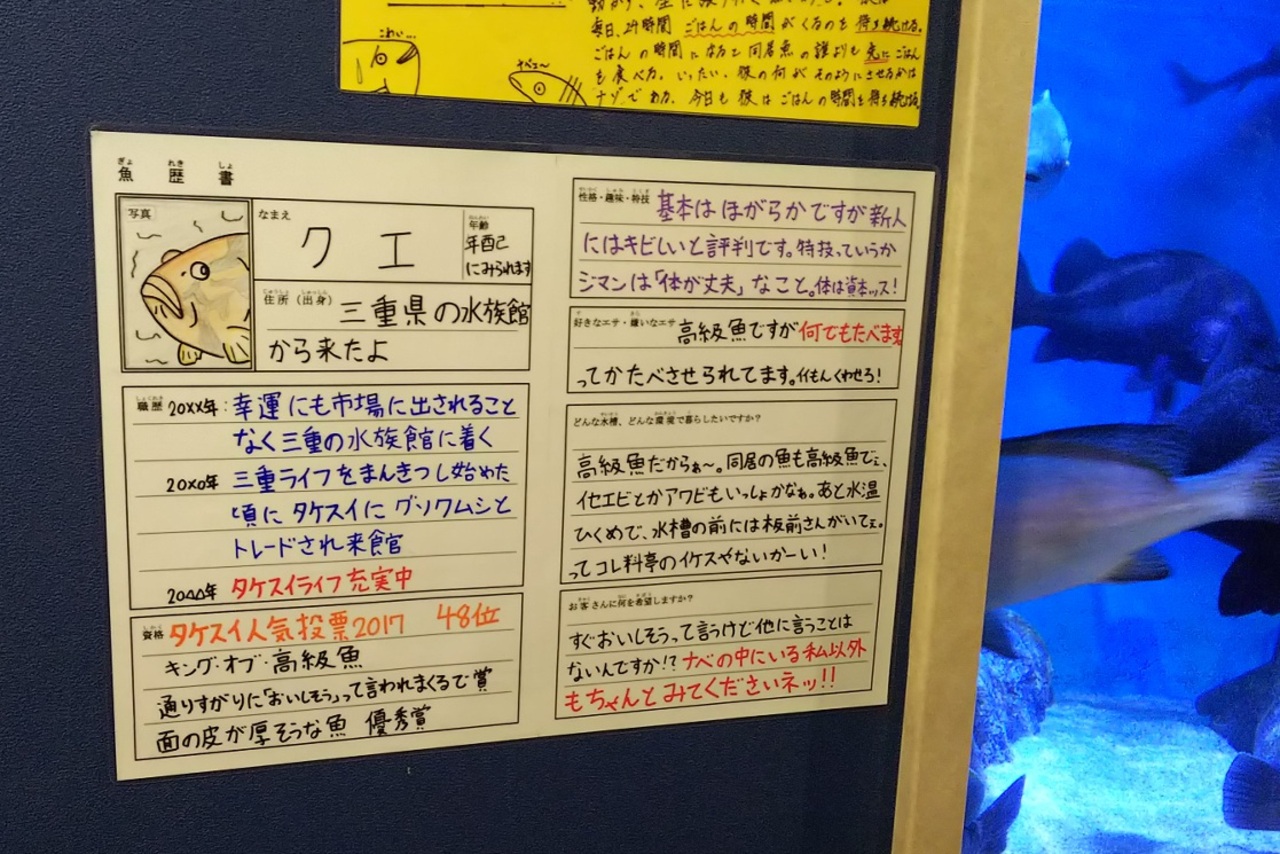 こわい…
ナベェ〜
毎日、24時間 ごはんの時間がくるのを待ち続ける。
ごはんの時間になると同居魚の誰よりも先にごはん
を食べる。いったい、彼の何がそのようにさせるかは
ナゾである。今日も彼はごはんの時間を待ち続ける。
魚歴書
ぎょれきしょ
写真
なまえ
クエ
年齢
年配に
にみられます
住所（出身）
三重県の水族館
から来たよ
職歴 20XX年：幸運にも市場に出されること
なく三重の水族館に着く
20×0年 三重ライフをまんきつし始めた
頃にタケスイにグソクムシと
トレードされ来館
20△△年 タケスイライフ充実中
資格 タケスイ人気投票2017 48位
キング・オブ・高級魚
通りすがりに"おいしそう"って言われまくるで賞
面の皮が厚そうな魚 優秀賞
性格・趣味・特技 基本はほがらかですが新人
にはキビしいと評判です。特技っていうか
ジマンは「体が丈夫」なこと。体は資本ッス！
好きなエサ・嫌いなエサ 高級魚ですが何でもたべます
ってかたべさせられてます。イイもんくわせろ！
どんな水槽、どんな環境で暮らしたいですか？
高級魚だからぁ〜。同居の魚も高級魚でぇ、
イセエビとかアワビもいっしょかなぁ。あと水温
ひくめで、水槽の前には板前さんがいてぇ。
ってコレ料亭のイケスやないかーい！
お客さんに何を希望しますか？
すぐおいしそうって言うけど他に言うことは
ないんですか!? ナベの中にいる私以外
もちゃんとみてくださいネッ!!